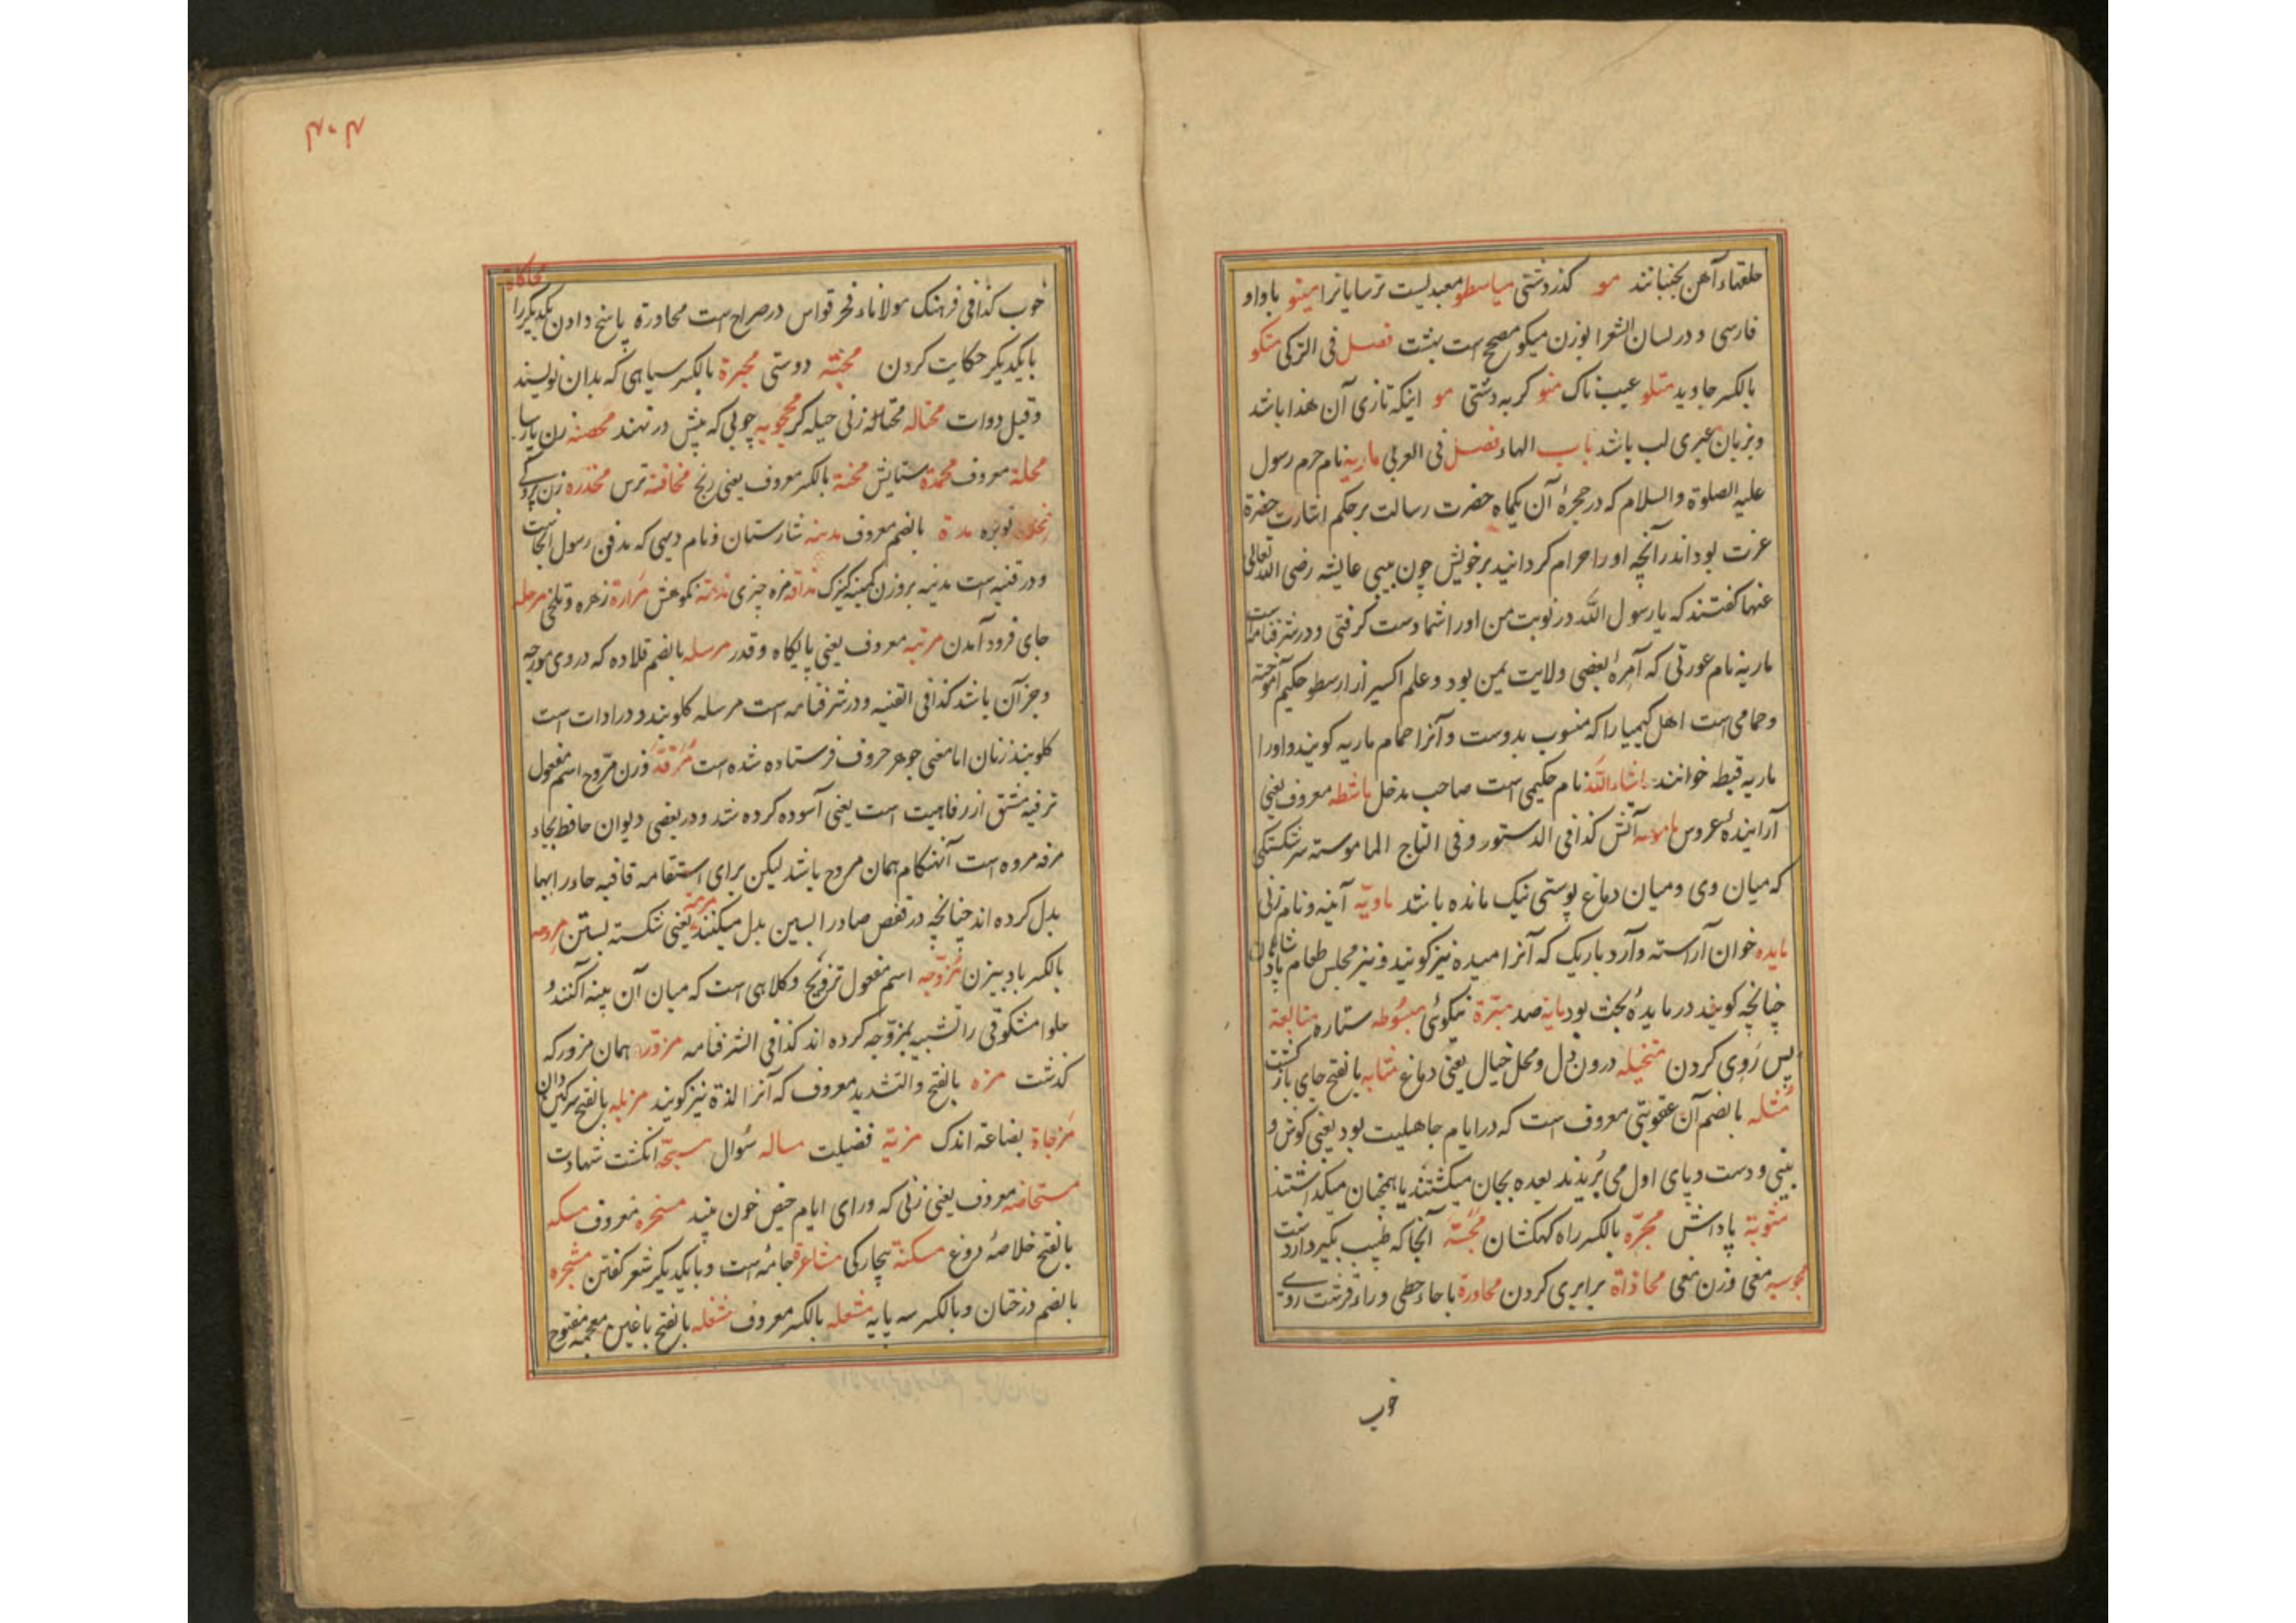 حلقهاء آهن بجنبانند مو کذردشتی میاسطو معبدیست ترسایانرا مینو باواو
فارسی و در لسان الشعرا بوزن میکو مصحح است بهشت فصل فی الترکی منکو
بالکسر جاوید متلو عیب ناک منو کربه دشتی مو اینکه تازی آن هذا باشد
وبزبان عبری لب باشد باب الهاء فصل فی العربی ماریه نام حرم رسول
علیه الصلوة والسلام که در حجرۀ آن یکماه حضرت رسالت برحکم اشارت حضرة
عزت بود اندرآنچه او را حرام کردانید برخویش چون بیبی عایشه رضی الله تعالی
عنها کفتند که یا رسول الله در نوبت من اورا شما دست کرفتی و درشرفنامه است
ماریه نام عورتی که آمرۀ بعضی ولایت یمن بود و علم اکسیر از ارسطو حکیم آموخته
وحمامی است اهل کیمیا را که منسوب بدوست و آنرا حمام ماریه کویند و اورا
ماریه قبطه خوانند ماشاءالله نام حکیمی است صاحب مدخل ماشطه معروف یعنی
آراینده عروس ماموسه آتش کذا فی الدستور وفی التاج الماموسته سرشکستکی
که میان وی ومیان دماغ پوستی نیک مانده باشد ماویّه آئینه و نام زنی
مایده خوان آراسته و آرد باریک که آنرا میده نیز کویند ونیز مجلس طعام پادشاهان
چنانچه کویند در مایدۀ بحث بود مایة صد مبرّة نیکوئی مبسوطه ستاره متابعة
پس رَوِی کردن متخیله درون دل ومحل خیال یعنی دماغ مثابه بالفتح جای بازکشت
مُثله بالضم آن عقوبتی معروف است که در ایام جاهلیت بود یعنی کوش و
بینی و دست و پای اول می بُریدند بعده بجان میکشتند یا همچنان میکذاشتند
مثوبة پاداش مجرّه بالکسر راه کهکشان مجَسّه آنجا که طبیب بکیرد از دست
مجوسیه مغی وزن مغی محاذاة برابری کردن محاورة باحاء حطی وراء قرشت روی
خوب
۴۰۴
محاکاة
خوب کذا فی فرهنک مولاناء فخر قواس در صراح است محاورة پاسخ دادن یکدیکر را
بایکدیکر حکایت کردن محبّة دوستی محبرة بالکسر سیاهی که بدان نویسند
وقیل دوات محتاله محتالة زنی حیله کر محجوبه چوبی که پیش در نهند محصنه زن پارسا
محلة معروف محمدة ستایش محنة بالکسر معروف یعنی رنج مخافة ترس مخدره زن پردکی
توبره مدة بالضم معروف مدینه شارستان ونام دیهی که مدفن رسول آنجاست
ودر قنیه است مدینه بروزن کمینه کنیزک مذاقه مزه چیزی مذمة نکوهش مرارة زهره وتلخی مرحله
جای فرود آمدن مرتبه معروف یعنی پایکاه وقدر مرسله بالضم قلاده که در وی مورجه
وجز آن باشد کذا فی القنیه ودرشرفنامه است مرسله کلوبند و در ادات است
کلوبند زنان اما معنی جوهر حروف فرستاده شده است مُرَفّه وَزن مرّوح اسم مفعول
ترفیه مشتق از رفاهیت است یعنی آسوده کرده شد و در بعضی دیوان حافظ بجاء
مرفه مروه است آنهنکام همان مروح باشد لیکن برای استقامة قافیه حاء را بها
بدل کرده اند چنانچه در قفص صاد را بسین بدل میکنند مرمة یعنی شکسته بستن مروحه
بالکسر بادبیزن مُزوّجه اسم مفعول تزویج وکلاهی است که میان آن پینه آکنند و
حلوا مشکوفی را تشبیه بمزوّجه کرده اند کذا فی الشرفنامه مزوّره همان مزور که
کذشت مزه بالفتح والتشدید معروف که آنرا لذة نیز کویند مزبله بالفتح سرکین دان
مَزجاة بضاعة اندک مزیة فضیلت مساله سُوال مسبّحه انکشت شهادت
مستحاضه معروف یعنی زنی که ورای ایام حیض خون بیند مسخره معروف مسکه
بالفتح خلاصۀ دروغ مسکنة بیچارکی مشاعرة جامۀ است وبایکدیکر شعر کفتن مشجره
بالضم درختان وبالکسر سه پایه مشعله بالکسر معروف مشغله بالفتح باغین معجمه مفتوح